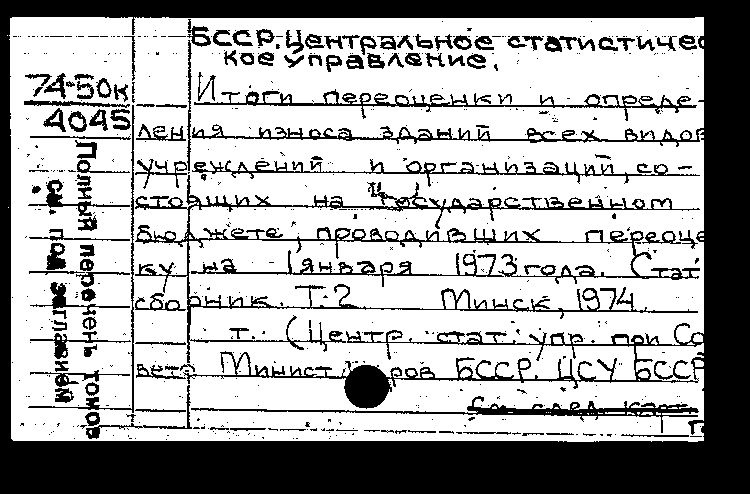 БССР. Центральное статистичес
кое управление.
74-50к
4045
Итоги переоценки и опреде-
ления износа зданий всех видов
учреждений и организаций, со-
стоящих на государственном
бюджете, проводивших переоце
ку на 1 января 1973 года. Стат
сборник. Т. 2 Минск, 1974.
т. (Центр. стат. упр. при Со
вете Министров БССР. ЦСУ БССР
См. след. карт.
Полный перечень томов
см. под заглавием